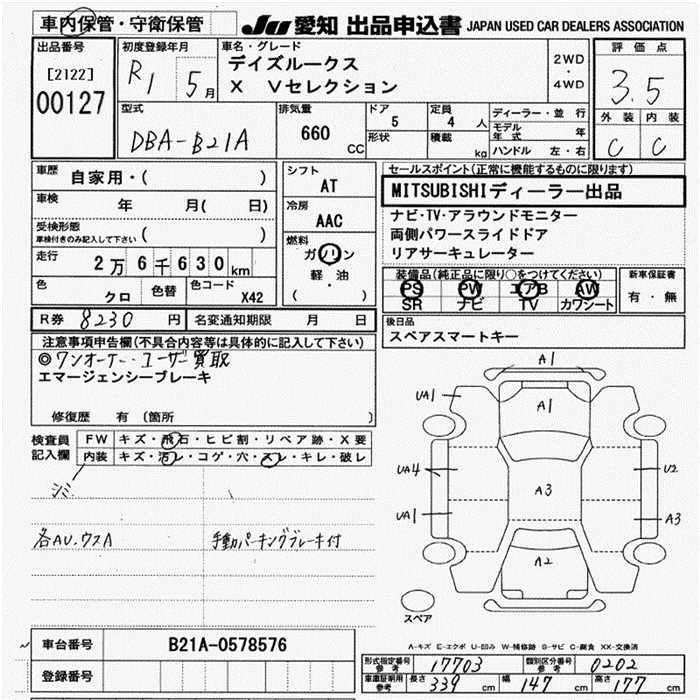 車内保管・守衛保管
JU 愛知 出品申込書 JAPAN USED CAR DEALERS ASSOCIATION
出品番号
[2122]
00127
初度登録年月
R1 5月
車名・グレード
デイズルークス
X Vセレクション
2WD
・
4WD
評価点
3.5
外装 内装
C C
型式
DBA-B21A
排気量
660 CC
ドア
5
形状
定員
4 人
積載 kg
ディーラー・並行
モデル年式 年
ハンドル 左・右
車歴
自家用・( )
車検 年 月( 日)
受検形態
車検付きのみ記入して下さい ( )
走行 2万6千630km
色 クロ 色替 色コード X42
シフト
AT
冷房
AAC
燃料
ガソリン
軽・油
( )
セールスポイント(正常に機能するものに限ります)
MITSUBISHIディーラー出品
ナビ・TV・アラウンドモニター
両側パワースライドドア
リアサーキュレーター
装備品(純正品に限り○をつけてください)
PS PW エアB AW
SR ナビ TV カワシート
新車保証書
有・無
R券 8230 円 名変通知期限 月 日
後日品
スペアスマートキー
注意事項申告欄(不具合内容等は具体的に記入して下さい)
◎ワンオーナー・ユーザー買取
エマージェンシーブレーキ
修復歴 有 〔箇所 〕
検査員記入欄
FW キズ・飛石・ヒビ割・リペア跡・X要
内装 キズ・汚レ・コゲ・穴・スレ・キレ・破レ
シミ
各AU.ウスA
手動パーキングブレーキ付
A1
UA1
A1
UA4
U2
A3
UA1
A3
A2
スペア
A-キズ E-エクボ U-凹み W-補修跡 S-サビ C-腐食 XX-交換済
車台番号 B21A-0578576
登録番号
形式指定番号 参考 17703 類別区分番号 参考 0202
車庫証明用 参考 長さ 339 cm 幅 147 cm 高さ 177 cm